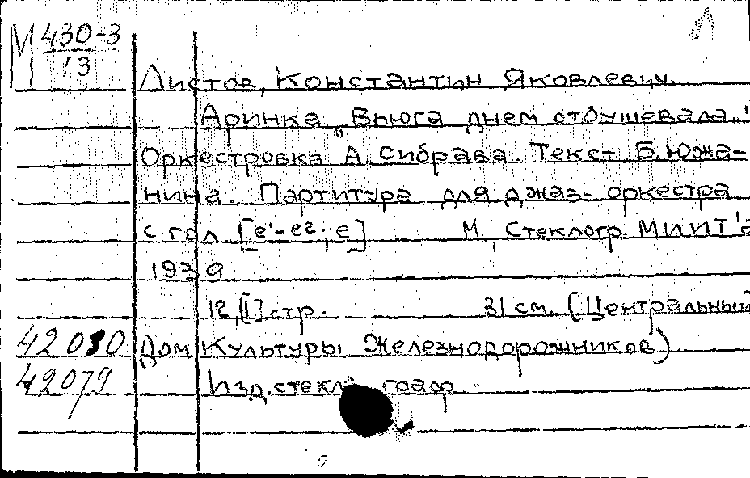 М 430-3
13
Листов, Константин Яковлевич
Аринка "Вьюга днем отбушевала."
Оркестровка А. Сибрава. Текст Б. Южа-
нина. Партитура для джаз-оркестра
с гол [e'-es²; e] М. Стеклогр. МИИТ'а
1939
12, [I] стр. 31 см. (Центральный
42080 Дом Культуры Железнодорожников)
42079 Изд. стекло граф